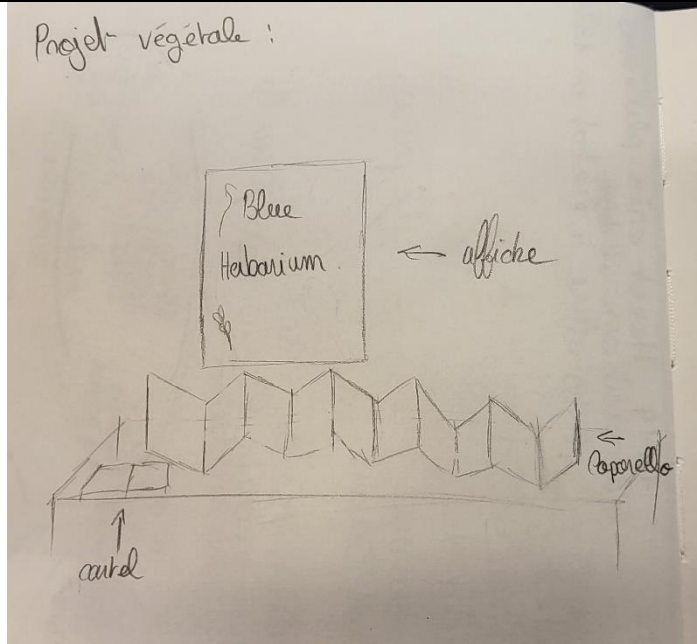 Projet végétale :
Blue
Herbarium.
← affiche
← Leporello
↑
cartel